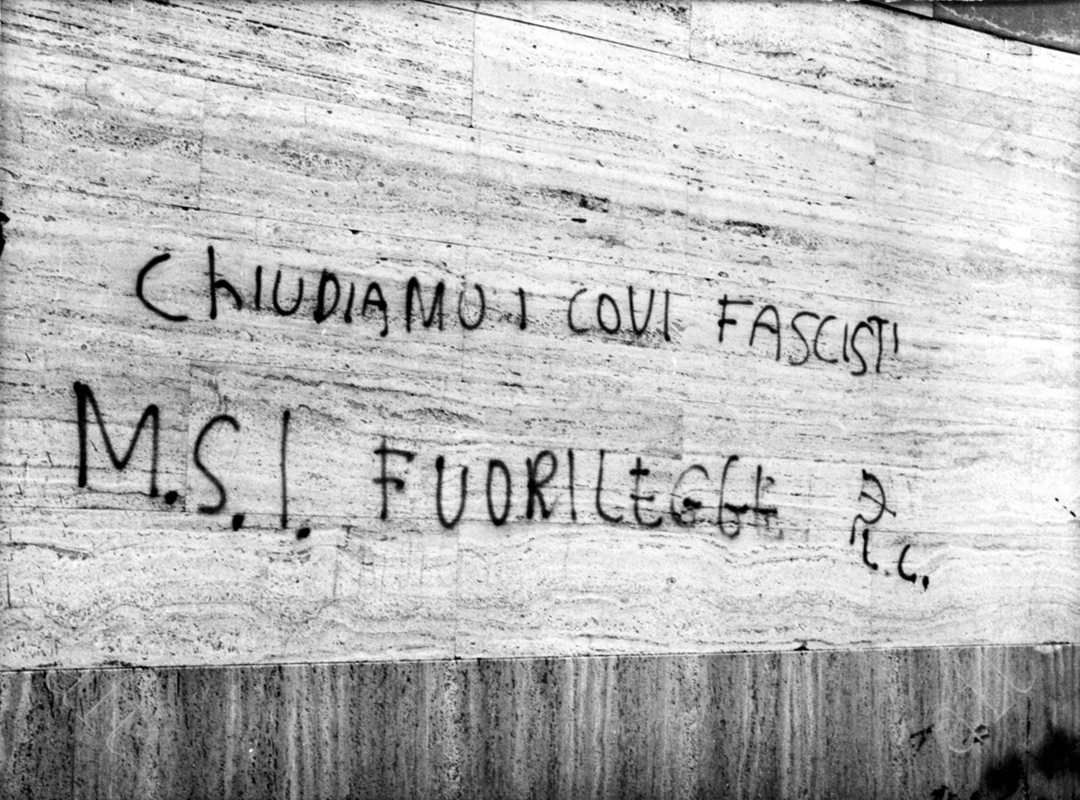 ChIUDIAMO I COVI FASCISTI
M.S.I. FUORILEGGE
L.C.